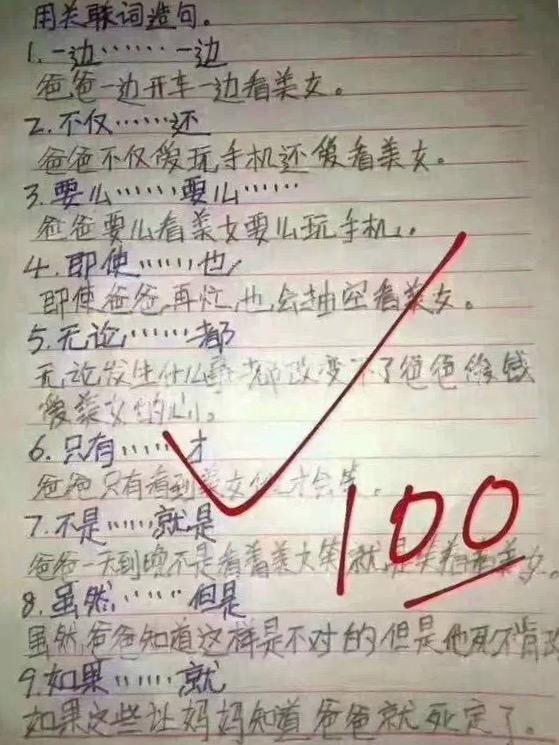 用关联词造句。
1.一边……一边
爸爸一边开车一边看美女。
2.不仅……还
爸爸不仅爱玩手机还爱看美女。
3.要么……要么……
爸爸要么看美女要么玩手机。
4.即使……也
即使爸爸再忙也会抽空看美女。
5.无论……都
无论发生什么事都改变不了爸爸
爱美女的心。
6.只有……才
爸爸只有看到美女他才会笑。
7.不是……就是
爸爸一天到晚不是看着美女笑就是笑着看美女。
8.虽然……但是
虽然爸爸知道这样是不对的但是他死不肯改
9.如果……就
如果这些让妈妈知道爸爸就死定了。
100